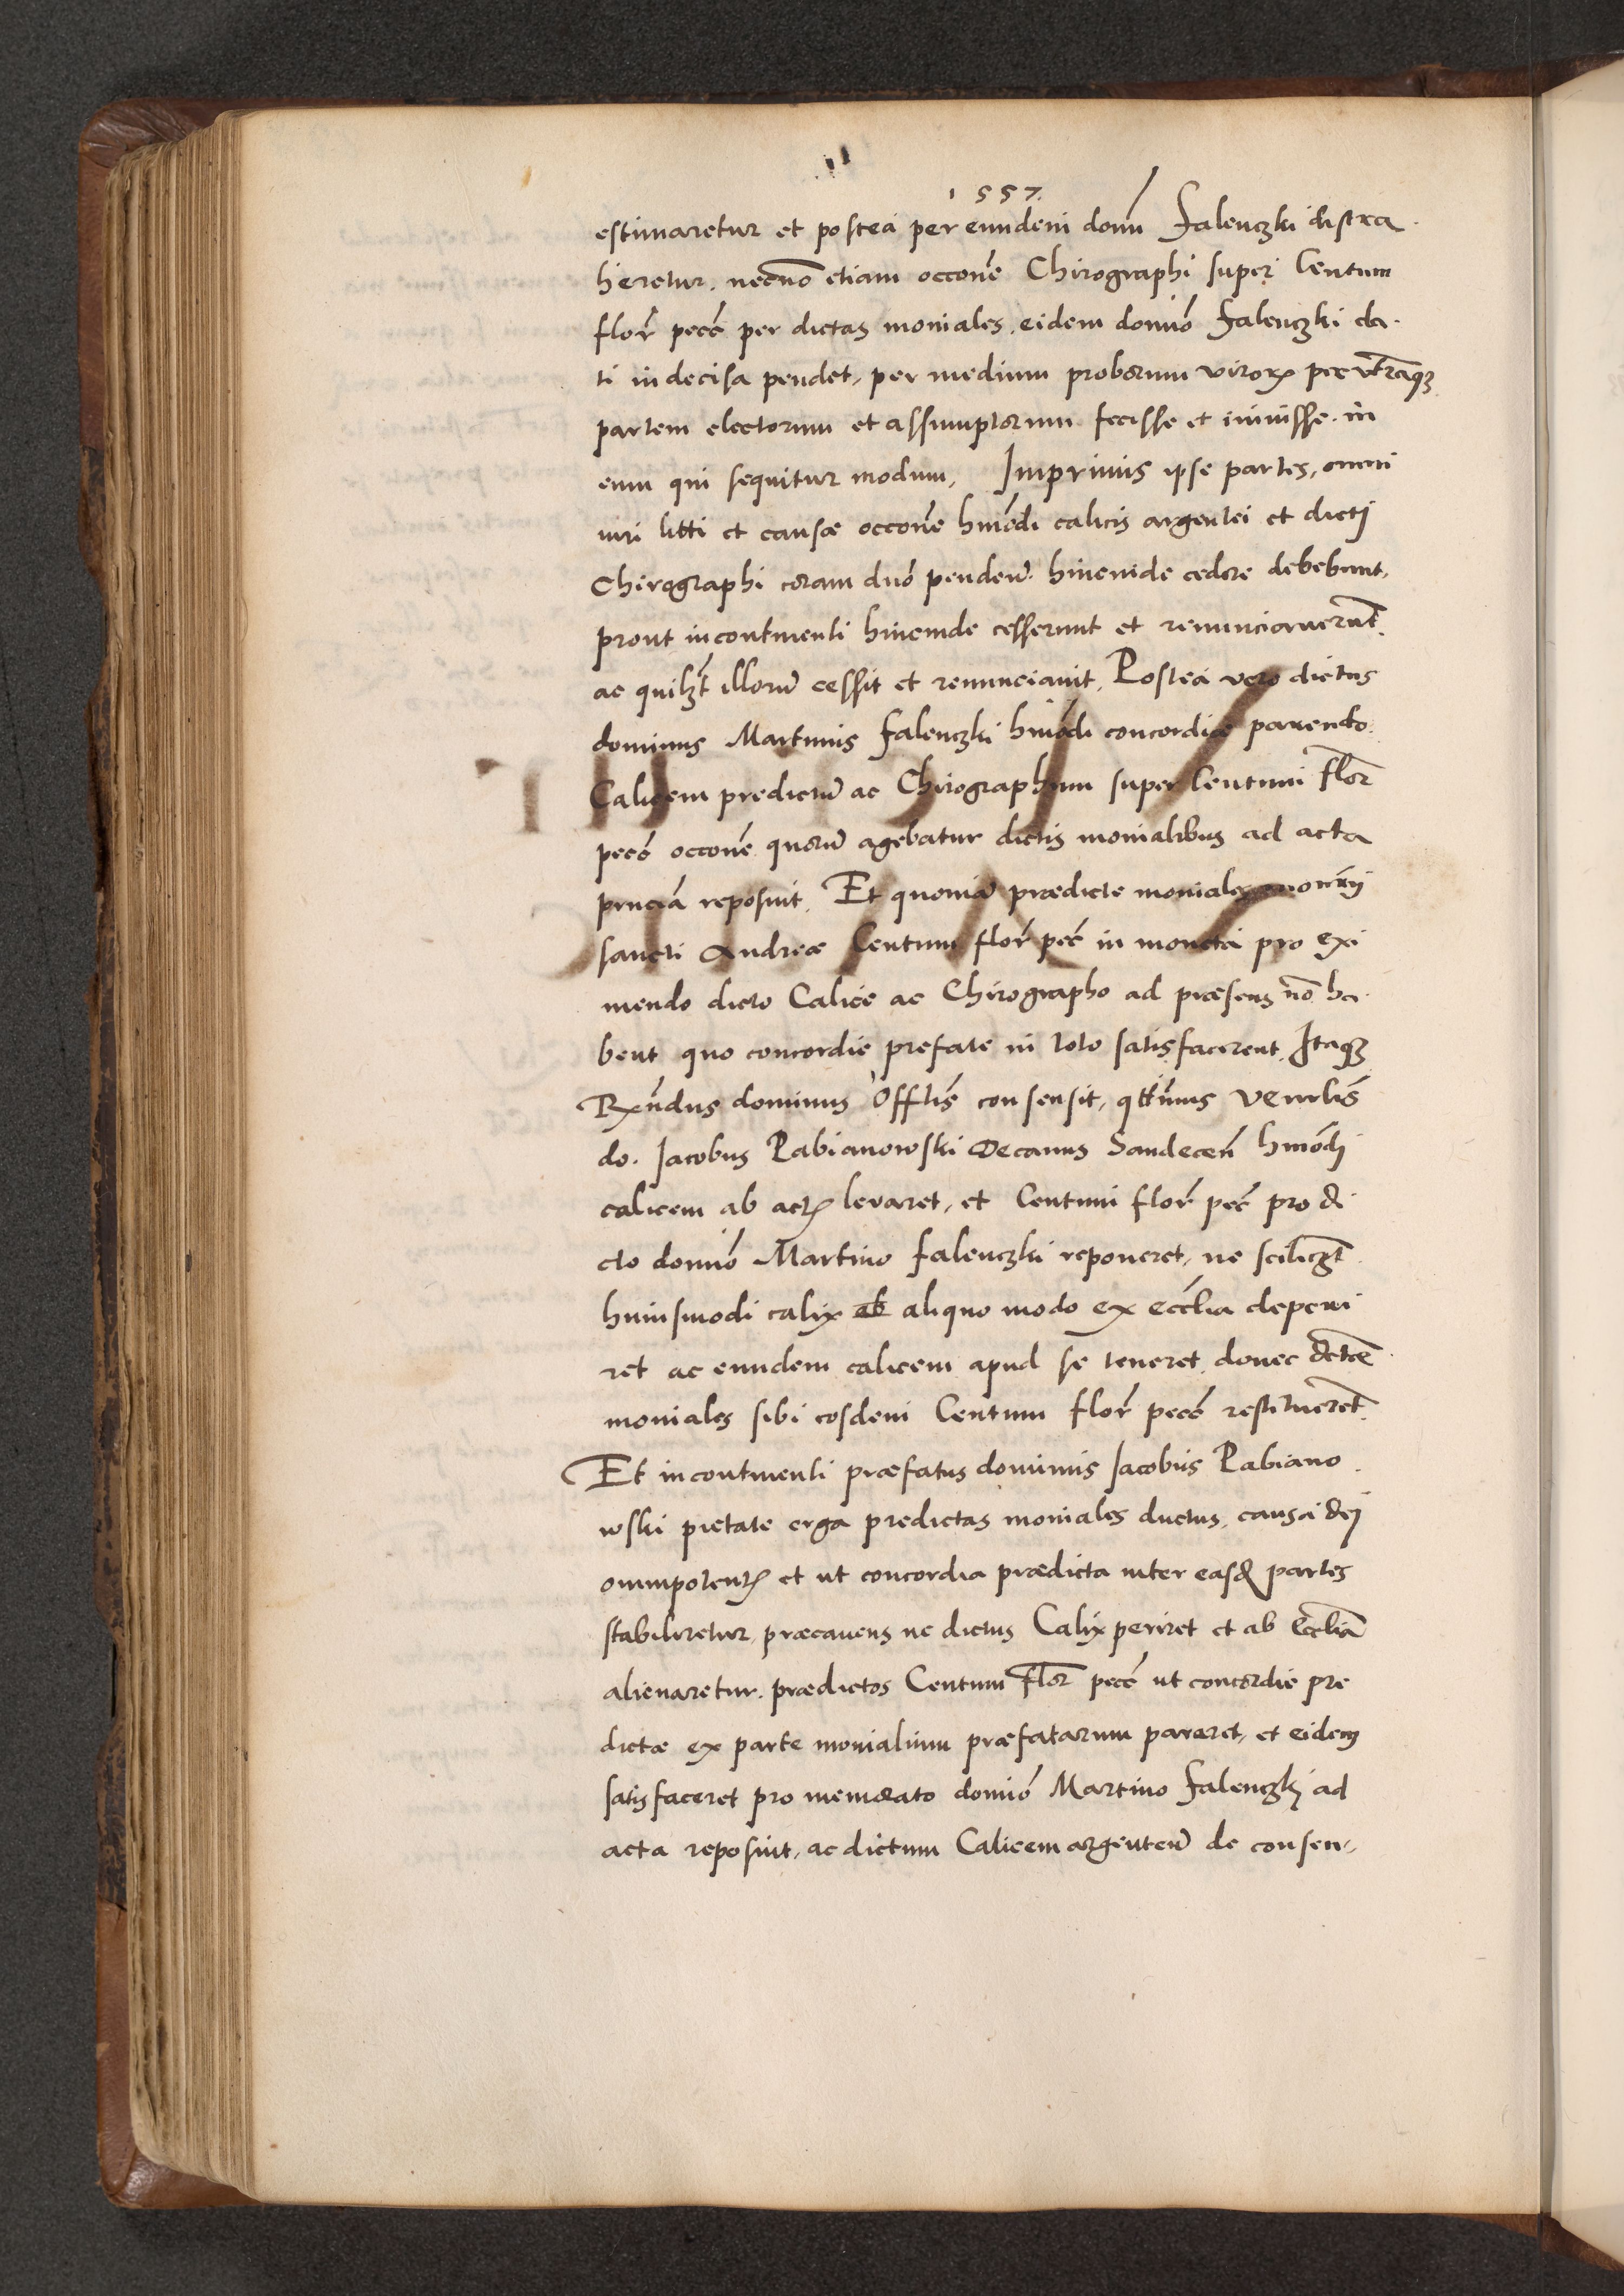 1557.
estimaretur et postea per eundem domi͂ Falenczki distra
heretur. necno͂ etiam occone͂ Chirographi super Centum
flor͂ pecc͂ per dictas moniales eidem domi͂o Falenczki da
ti indecisa pendet, per medium proborum virorꝝ per utra͂qꝫ
partem electorum et assumptorum fecisse et inivisse. in
eum qui sequitur modum, Imprimis ipse partes, omni
iuri litti et causæ occone͂ hmo͂di calicis argentei et dictj
Chirographi coram duo͂ penden͂. hincinde cedere debebunt,
prout incontinenti hincinde cesserunt et renunciaveru͂t.
ac quilꝫt illoru͂ cessit et renunciavit. Postea vero dictus
dominus Martinus Falenczki hmo͂di concordiæ parendo
Calicem predictu͂ ac Chirographum super Centum flor͂
pecc͂ occone͂ quoru͂ agebatur dictis monialibus ad acta
reposuit. Et quonia͂ prædicte moniales
sancti Andreæ Centum flor͂ pec͂ in moneta pro exi
mendo dicto Calice ac Chirographo ad præsens no͂ ha
bent quo concordie prefate in toto satisfacerent. Itaqꝫ
Rx͂ndus dominus Offlis͂ consensit, qtt͂inus Ven͂rlis͂
do. Jacobus Pabianowski Decanus Sandecen͂ hmo͂dj
calicem ab actꝭ levaret, et Centum flor͂ pec͂ pro di
cto domi͂o Martino Falenczki reponeret, ne scilicꝫt
huiusmodi calix ab aliquo modo ex eccl͂ia deperi
ret ac eundem calicem apud se teneret donec dctæ͂
moniales sibi eosdem Centum flor͂ pecc͂ restituere͂t.
Et incontinenti præfatus dominus Jacobus Pabiano
wski pietate erga predictas moniales ductus, causa dej
omnipotentꝭ et ut concordia prædicta inter easd͂ partes
stabiliretur, præcavens ne dictus Calix periret et ab Eccl͂ia
alienaretur. prædictos Centum flor͂ pecc͂ ut concordie pre
dictæ ex parte monialium præfatarum pareret, et eidem
satisfaceret pro memorato domi͂o Martino Falenczkj ad
acta reposuit, ac dictum Calicem argenteu͂ de consen,